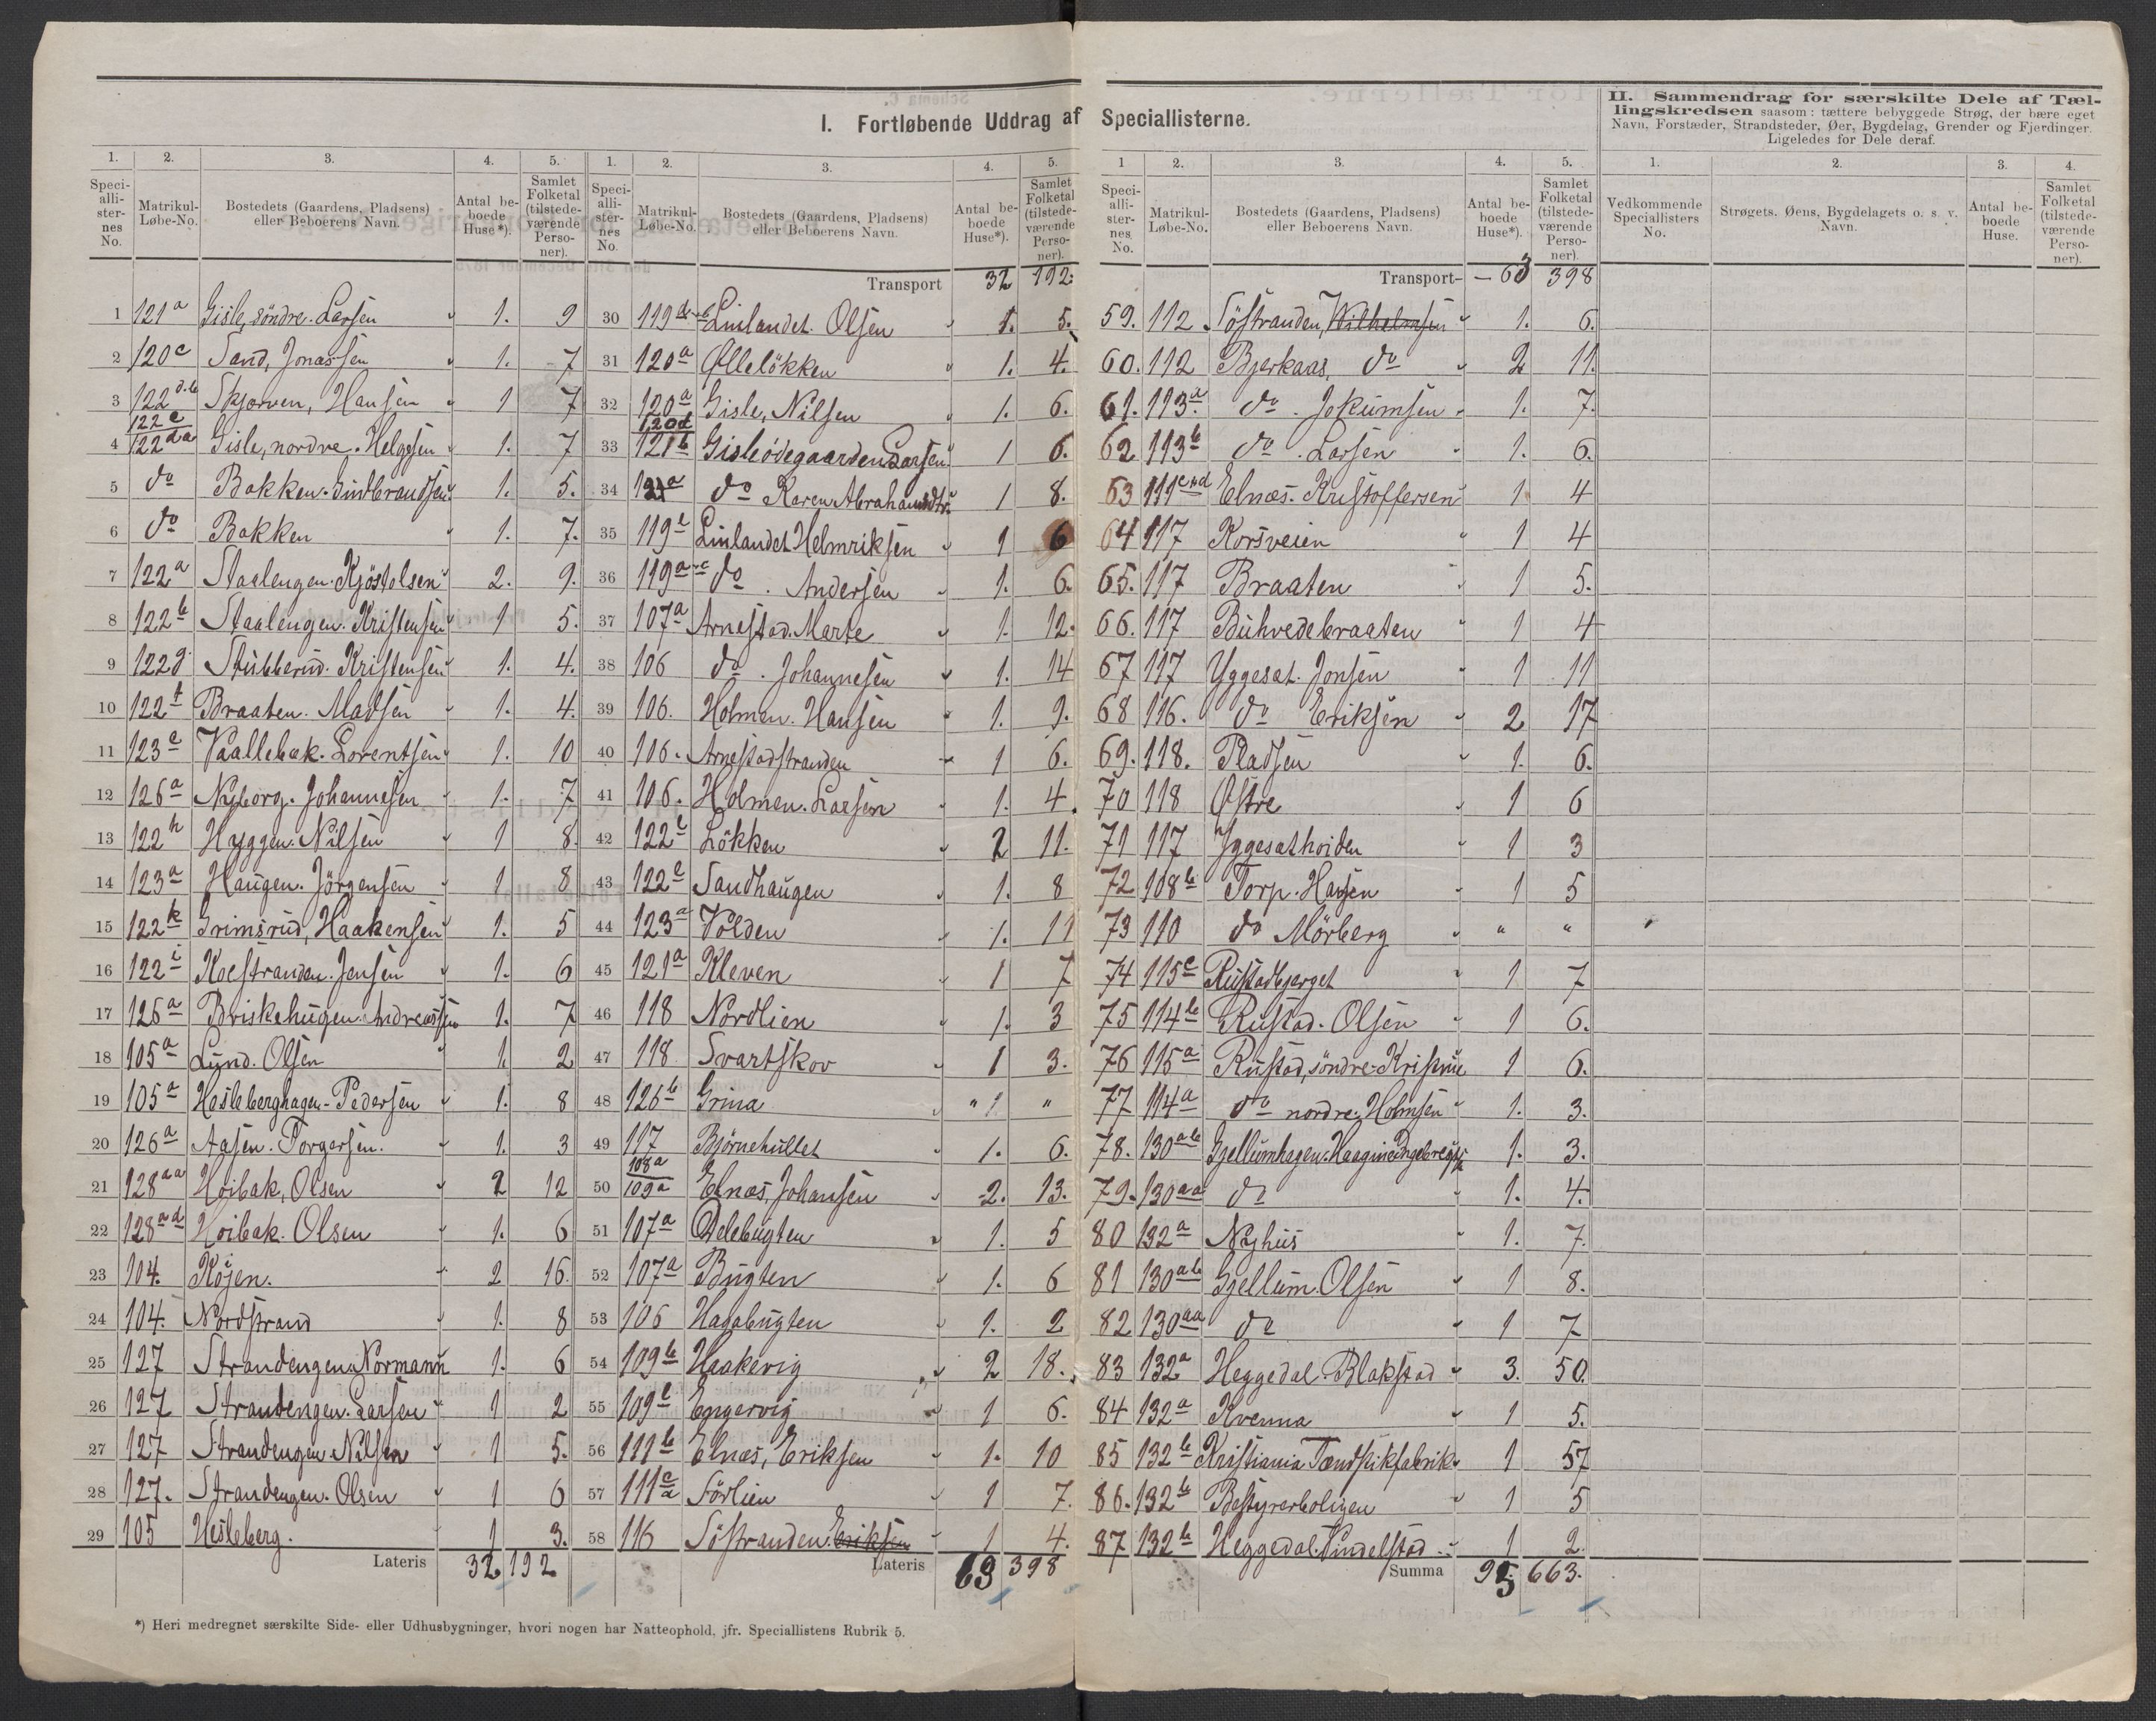 I. Fortløbende Uddrag af Speciallisterne.
II. Sammendrag for særskilte Dele af Tæl-
lingskredsen saasom: tættere bebyggede Strøg, der bære eget
Navn, Forstæder, Strandsteder, Øer, Bygdelag, Grender og Fjerdinger.
Ligeledes for Dele deraf.
1. 2. 3. 4. 5.
Speci-alli-ster-nes No. Matrikul-Løbe-No. Bostedets (Gaardens, Pladsens) eller Beboerens Navn. Antal be-boede Huse*). Samlet Folketal (tilstede-værende Perso-ner).
1 121a Gisle, söndre. Larsen " 1. 9
2 120c Sand, Jonassen " 1. 7
3 122d.b Skjorven, Hansen " 1 7
4 122c 122da Gisle, nordre. Helgesen " 1. 7
5 do Bakken. Gudbrandsen " 1. 5.
6 do Bakken " 1. 7.
7 122a Staalengen. Kjöstolsen " 2. 9.
8 122b Staalengen. Kristensen " 1 5.
9 122g Stubberud. Kristensen " 1. 4.
10 122f Braaten. Madsen " 1. 4.
11 123c Vaallebæk. Lorentsen " 1. 10
12 126a Nyborg. Johannesen " 1. 7
13 122h Hyggen. Nilsen " 1 8.
14 123a Haugen. Jörgensen " 1 8
15 122k Grimsrud, Haakensen " 1. 5
16 122i Koestranden. Jensen " 1. 6
17 126a Briskehugen. Andreassen 1. 7
18 105a Lund. Olsen " 1. 2
19 105a Hesleberghagen - Pedersen " 1. 8
20 126a Aasen. Torgersen. " 1. 3
21 128aa Hoibak, Olsen " 2 12
22 128ad Hoibak. Olsen " 1. 6
23 104. Köjen. " 2 16.
24 104. Nordstrand " 1. 8
25 127 Strandengen. Normann 1. 6
26 127 Strandengen. Larsen " 1 2
27 127 Strandengen Nilsen " 1 5.
28 127. Strandengen. Olsen " 1 6
29 105 Hesleberg. 1 3.
Lateris 32 192
1. 2. 3. 4. 5.
Speci-alli-ster-nes No. Matrikul-Løbe-No. Bostedets (Gaardens, Pladsens) eller Beboerens Navn. Antal be-boede Huse*). Samlet Folketal (tilstede-værende Perso-ner).
Transport 32 192.
30 Linlandet. Olsen " 1. 5.
31 120a Ølleløkken " 1. 4.
32 120a Gisle, Nilsen " 1. 6.
33 120d 121b Gisleødegaarden Larsen " 1 6.
34 121a do Karen Abrahamsdtr. 1 8.
35 119b Linlandet Helmriksen " 1 6
36 119a-c do. Andersen " 1. 6.
37 107a Arnestad. Marte " 1. 12.
38 106 do. Johannesen " 1. 14
39 106. Holmen. Hansen " 1. 9.
40 106. Arnestadstranden " 1 6.
41 106. Holmen. Larsen " 1. 4.
42 122l Løkken " 2 11.
43 122e Sandhaugen " 1. 8
44 123a Volden " 1. 11
45 121a Kleven " 1 7
46 118 Nordlien " 1. 3
47 118 Svartskov " 1 3.
48 126b Grina " " 1 "
49 117 Bjørnehullet " 1. 6.
50 108a 109a Elnæs, Johansen " 2. 13.
51 107a Delebugten " 1. 5
52 107a Bugten " 1. 6
53 106 Hagabugten " 1. 2
54 109b Haakevig " 2 18.
55 109b Engervig " 1 6.
56 111b Elnæs, Eriksen " 1. 10
57 111a Sörlien " 1 7.
58 116 Söstranden. Eriksen " 1 4.
Lateris 63 398
1 2. 3. 4. 5.
Speci-alli-ster-nes No. Matrikul-Løbe-No. Bostedets (Gaardens, Pladsens) eller Beboerens Navn. Antal be-boede Huse*). Samlet Folketal (tilstede-værende Perso-ner).
Transport - 63 398
59. 112 Söstranden, Wilhelmsen " 1. 6.
60. 112 Bjerkaas, do " 2 11.
61. 113a do. Jokumsen " 1. 7.
62 113b do. Larsen " 1. 6.
63 111c&d Elnæs. Kristoffersen " 1 4
64 117 Korsveien " 1 4
65. 117 Braaten " 1 5.
66. 117 Buhvedebraaten " 1 4
67 117 Yggeset. Jonsen " 1 11
68 116. do Eriksen " 2 17
69. 118. Pladsen " 1. 6.
70 118 Østre " 1 6
71 117 Yggesethoiden " 1 3
72 108b Torp. Hansen " 1 5
73 110 do Mörberg " " "
74 115c Rustadbjerget " 1 7
75 114b Rustad. Olsen " 1 6.
76 115a Rustad, söndre 1 6.
77 114a do nordre. Holmsen " 1. 3.
78. 130ab Gjellumhagen. 1. 3.
79. 130aa do " 1. 4.
80 132a Nyhus " 1. 7.
81 130ab Gjellum. Olsen " 1 8.
82 130aa do " 1 7
83 132a Heggedal Blakstad " 3. 50.
84 132a Kvenna " 1 5.
85 132b Kristiania Tændstikfabrik " 1 57
86. 132b Bestyrerboligen " 1 5
87 132b Heggedal. " 1 2.
Summa 95 663.
1. 2. 3. 4.
Vedkommende Speciallisters No. Strøgets. Øens, Bygdelagets o. s. v. Navn. Antal be-boede Huse. Samlet Folketal (tilstede-værende Perso-ner).
*) Heri medregnet særskilte Side- eller Udhusbygninger, hvori nogen har Natteophold, jfr. Speciallistens Rubrik 5.